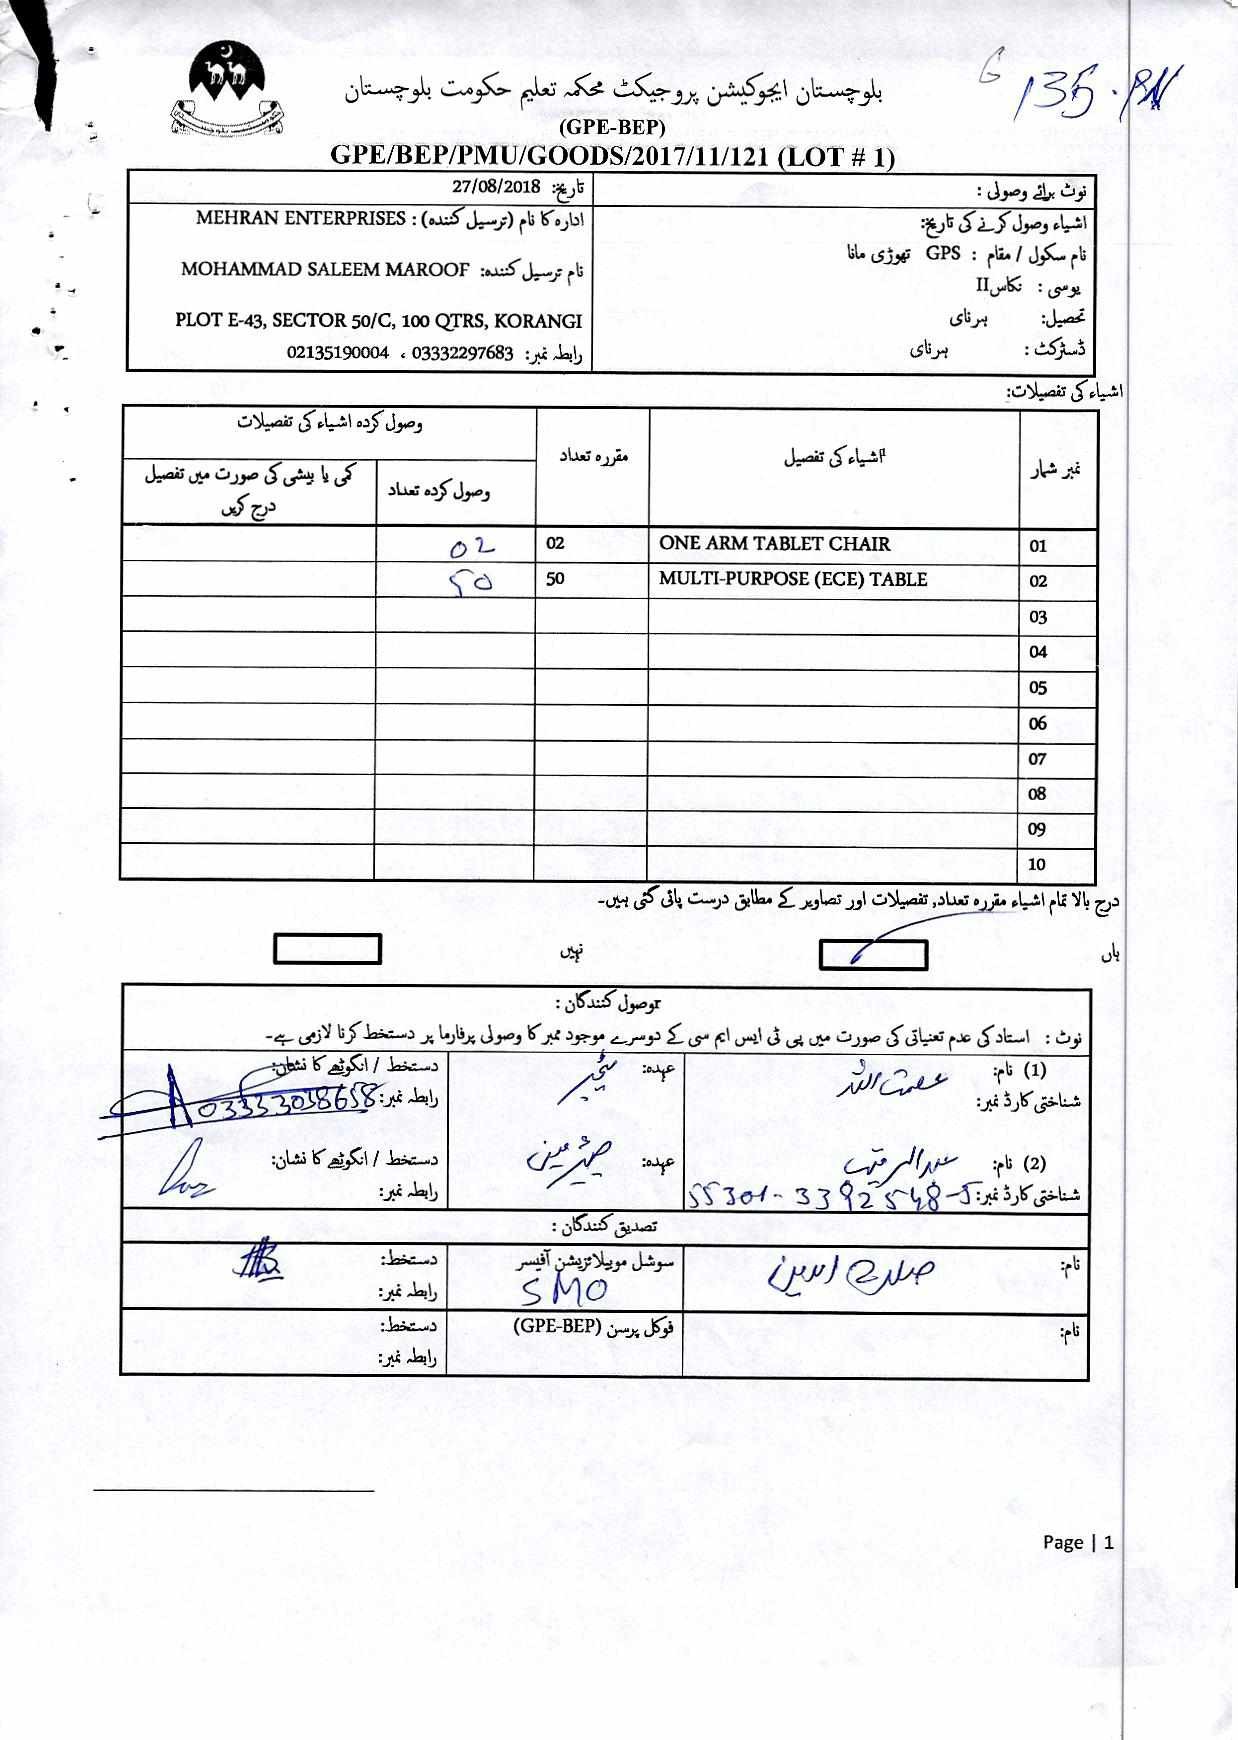 135-BN
بلوچستان ایجوکیشن پروجیکٹ محکمہ تعلیم حکومت بلوچستان
(GPE-BEP)
GPE/BEP/PMU/GOODS/2017/11/121 (LOT # 1)
نوٹ برائے وصولی :
تاریخ: 27/08/2018
اشیاء وصول کرنے کی تاریخ:
ادارہ کا نام (ترسیل کنندہ) : MEHRAN ENTERPRISES
نام سکول / مقام : GPS تھوڑی مانا
نام ترسیل کنندہ: MOHAMMAD SALEEM MAROOF
یوسی : نکاس II
تحصیل: ہرنای
PLOT E-43, SECTOR 50/C, 100 QTRS, KORANGI
ڈسٹرکٹ : ہرنای
رابطہ نمبر: 03332297683 ، 02135190004
اشیاء کی تفصیلات:
نمبر شمار اشیاء کی تفصیل مقررہ تعداد وصول کردہ اشیاء کی تفصیلات
وصول کردہ تعداد کمی یا بیشی کی صورت میں تفصیل درج کریں
01 ONE ARM TABLET CHAIR 02 02
02 MULTI-PURPOSE (ECE) TABLE 50 50
03
04
05
06
07
08
09
10
درج بالا تمام اشیاء مقررہ تعداد, تفصیلات اور تصاویر کے مطابق درست پائی گئی ہیں۔
ہاں نہیں
وصول کنندگان :
نوٹ : استاد کی عدم تعنیاتی کی صورت میں پی ٹی ایس ایم سی کے دوسرے موجود ممبر کا وصولی پرفارما پر دستخط کرنا لازمی ہے۔
(1) نام: عصمت اللہ عہدہ: ٹیچر دستخط / انگوٹھے کا نشان:
شناختی کارڈ نمبر: رابطہ نمبر: 03333038658
(2) نام: عہدہ: چیئرمین دستخط / انگوٹھے کا نشان:
شناختی کارڈ نمبر: 55301-3392548-5 رابطہ نمبر:
تصدیق کنندگان :
نام: صلاح الدین سوشل موبیلائزیشن آفیسر دستخط:
SMO رابطہ نمبر:
نام: فوکل پرسن (GPE-BEP) دستخط:
رابطہ نمبر:
Page | 1